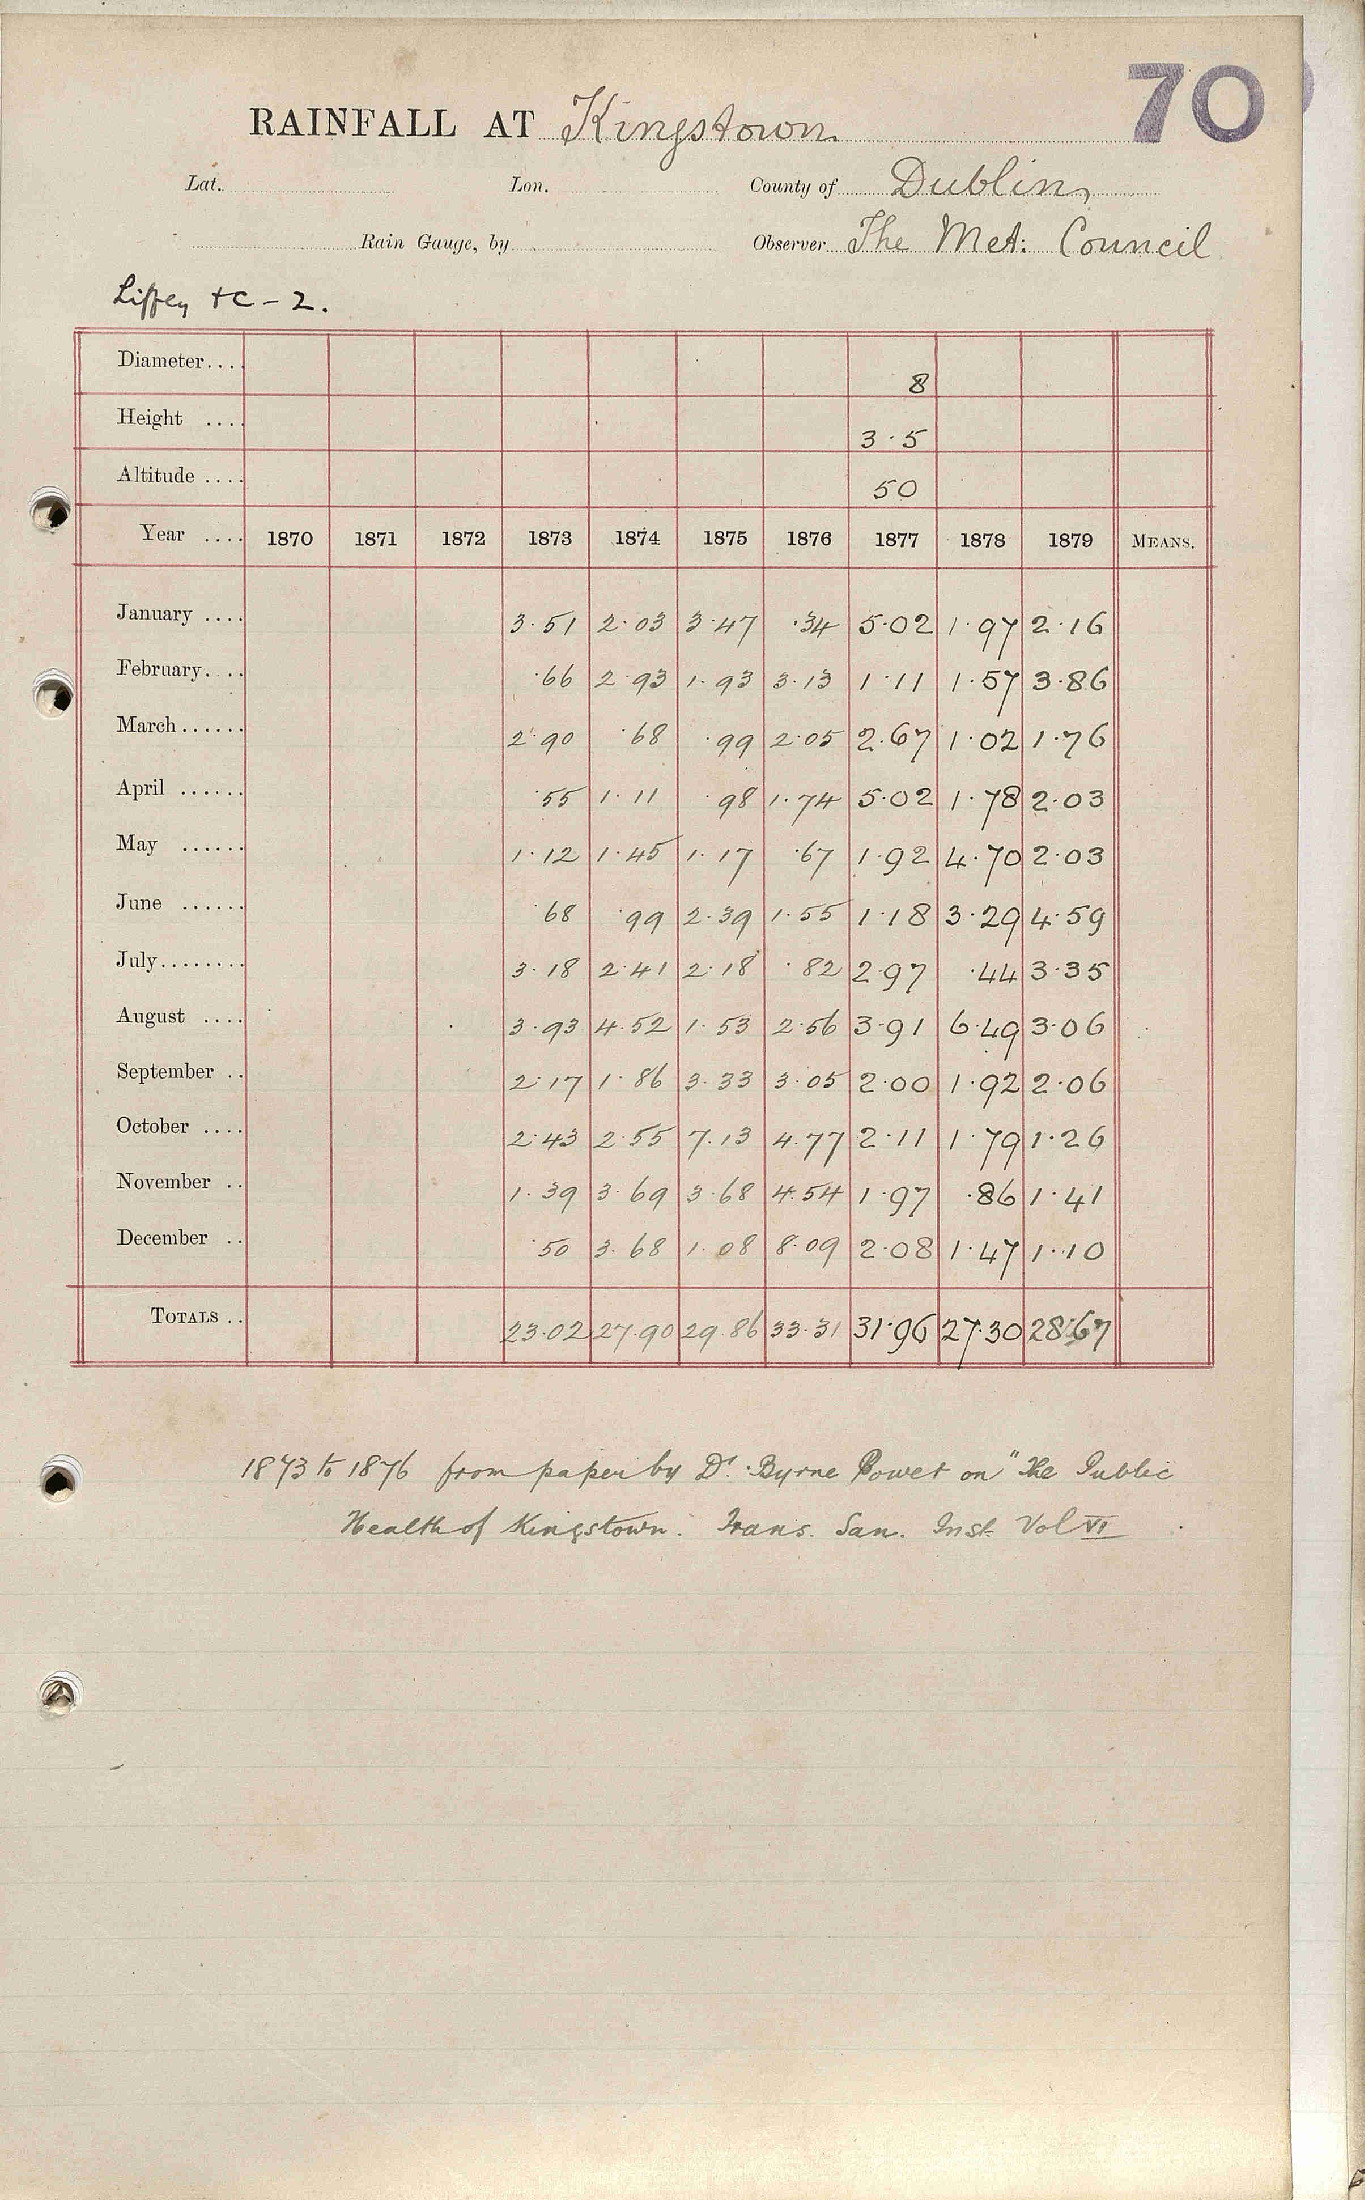 70
RAINFALL AT Kingstown
Lat. Lon. County of Dublin
Rain Gauge, by Observer The Met: Council
Liffey +C - 2.
Diameter.... 8
Height .... 3.5
Altitude .... 50
Year .... 1870 1871 1872 1873 1874 1875 1876 1877 1878 1879 MEANS.
January .... 3.51 2.03 3.47 .34 5.02 1.97 2.16
February.... .66 2.93 1.93 3.13 1.11 1.57 3.86
March...... 2.90 .68 .99 2.05 2.67 1.02 1.76
April ...... .55 1.11 .98 1.74 5.02 1.78 2.03
May ...... 1.12 1.45 1.17 .67 1.92 4.70 2.03
June ...... .68 .99 2.39 1.55 1.18 3.29 4.59
July........ 3.18 2.41 2.18 .82 2.97 .44 3.35
August .... 3.93 4.52 1.53 2.56 3.91 6.49 3.06
September .. 2.17 1.86 3.33 3.05 2.00 1.92 2.06
October .... 2.43 2.55 7.13 4.77 2.11 1.79 1.26
November .. 1.39 3.69 3.68 4.54 1.97 .86 1.41
December .. .50 3.68 1.08 8.09 2.08 1.47 1.10
TOTALS .. 23.02 27.90 29.86 33.31 31.96 27.30 28.67
1873 to 1876 from paper by Dr. Byrne Power on "The Public
Health of Kingstown. Trans. San. Inst. Vol VI